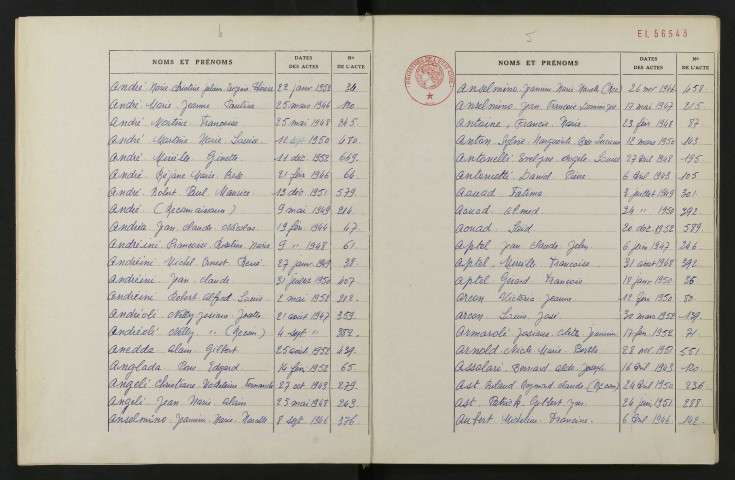 6
NOMS ET PRÉNOMS DATES DES ACTES Nº DE L'ACTE
André Marie Christine 22 janv. 1952 24
André Marie Jeanne Pauline 25 mars 1946 120
André Martine Francoise 25 mai 1948 245
André Martine Marie Louise 1950 480
André Mireille Ginette 11 dec. 1952 669
André Réjane Marie Rose 21 fév 1946 64
André Robert Paul Maurice 13 dec. 1951 579
André (Reconnaissance) 9 mai 1949 214
Jean Claude Nicolas 19 fév. 1944 47
Andréini Francoise Marie 9 " 1948 61
Andréini Michel Ernest René 27 janv 1949 38
Andréini Jean Claude 31 juillet 1950 407
Andréini Robert Alfred Louis 2 mai 1952 212
Andréoli Nelly Josiane Josette 21 août 1947 359
Andréoli Nelly " " (Recon) 4 sept " 383
Anedda Alain Gilbert 25 août 1952 439
Anglada Edgard 14 fév 1952 65
Angeli Christiane Fernande 27 oct 1943 279
Angeli Jean Marie Alain 23 mai 1947 243
Anselmino Jeannine Marie Marcelle 8 sept 1946 376
5
EL 56543
NOMS ET PRÉNOMS DATES DES ACTES Nº DE L'ACTE
Anselmino Jeannine Marie (Rec) 26 nov 1946 458
Anselmino Jean Francois Dominique 17 mai 1947 215
Antoine Francis Marie 23 fév 1948 87
Anton Sylvie Marguerite 12 mars 1950 143
Antonelli Evelyne Angèle Louise 27 avril 1948 195
Antonietti Daniel Pierre 6 avril 1943 105
Aouad Fatima 8 juillet 1949 301
Aouad Ahmed 24 " 1950 392
Aouad Saïd 20 dec. 1952 589
Aptel Jean Claude John 6 juin 1947 246
Aptel Mireille Francoise 31 août 1948 392
Aptel Gérard Francois 18 janv 1950 36
Arcon Victoria Jeanne 12 1950 80
Arcon Louis José 30 mars 1952 139
Armaroli Josiane Jeannine 17 fév 1952 71
Arnold Nicole Marie Berthe 28 nov 1951 551
Assolari Bernard Joseph 16 avril 1943 120
Ast Roland Raymond Claude (Recon) 24 avril 1950 236
Ast Patrick Gilbert 24 juin 1951 288
Aubert Micheline Francine 6 avril 1946 142